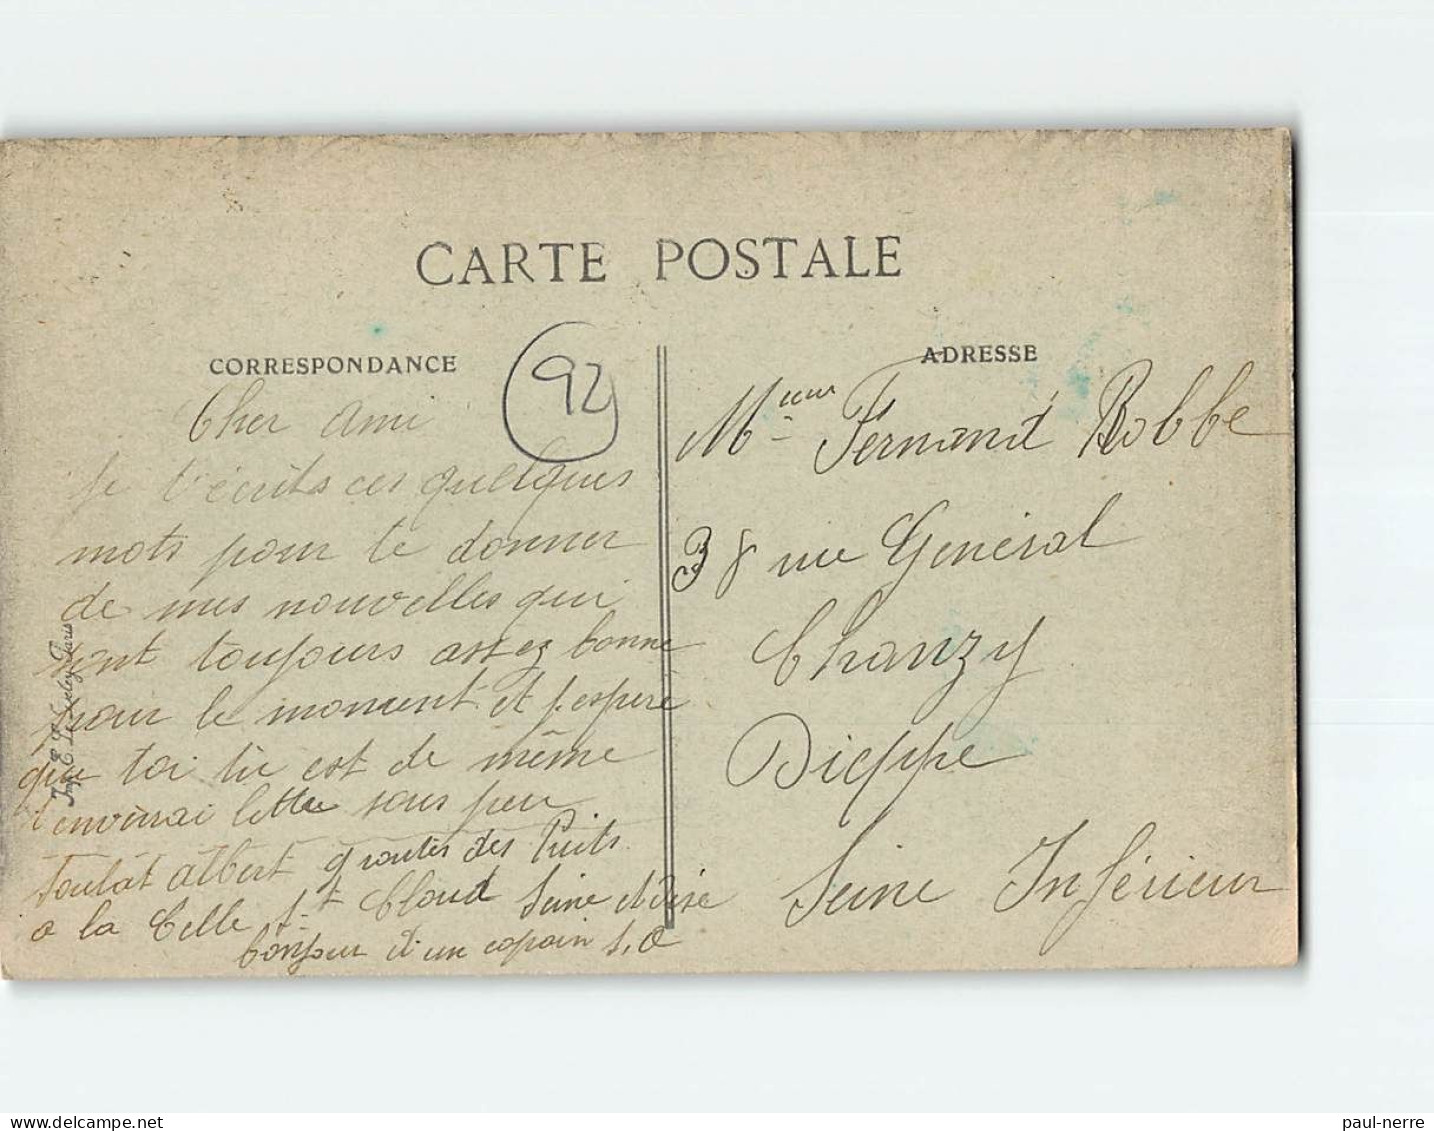 CARTE POSTALE
CORRESPONDANCE
92
Cher ami
je t'écrits ces quelques
mots pour te donner
de mes nouvelles qui
sont toujours assez bonne
pour le moment et j'espère
que toi tu est de même
t'enverrai lettre sous peu
Albert 9 routes des Puits
a la Celle St Cloud Seine et Oise
bonjour d'un copain
ADRESSE
Msieur Fernand Robbe
38 rue Général
Chanzy
Dieppe
Seine Inférieur
Paris
paul-nerre